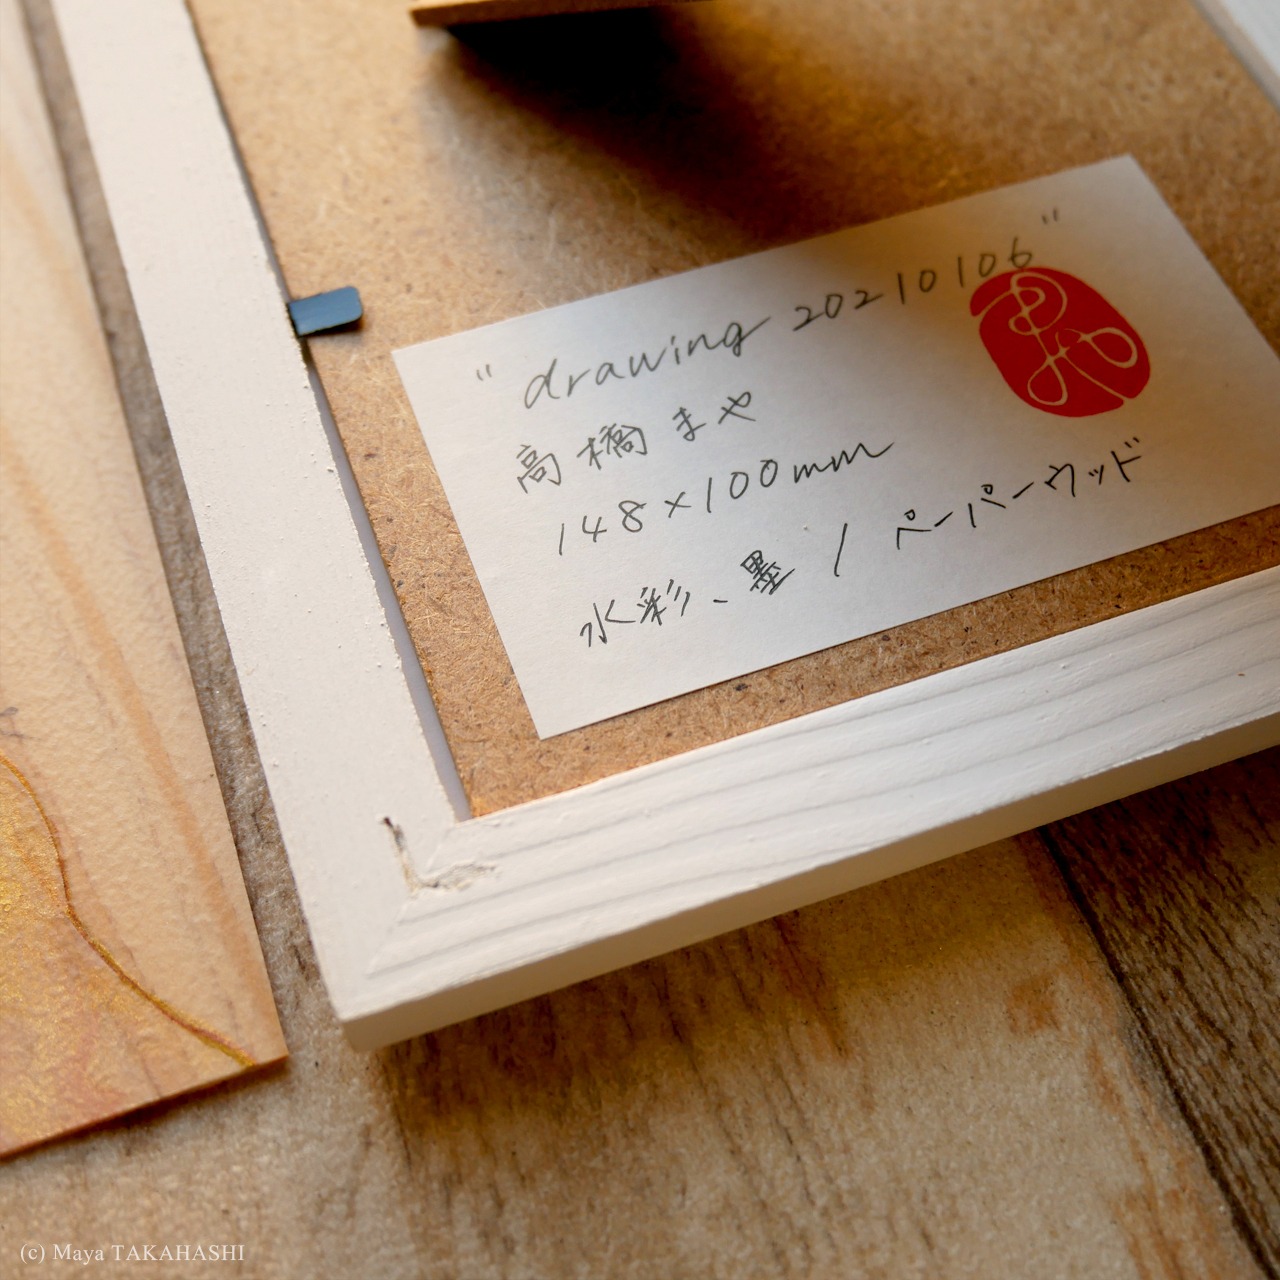 "drawing 20210106"
高橋 まや
148×100mm
水彩、墨 / ペーパーウッド
(c) Maya TAKAHASHI